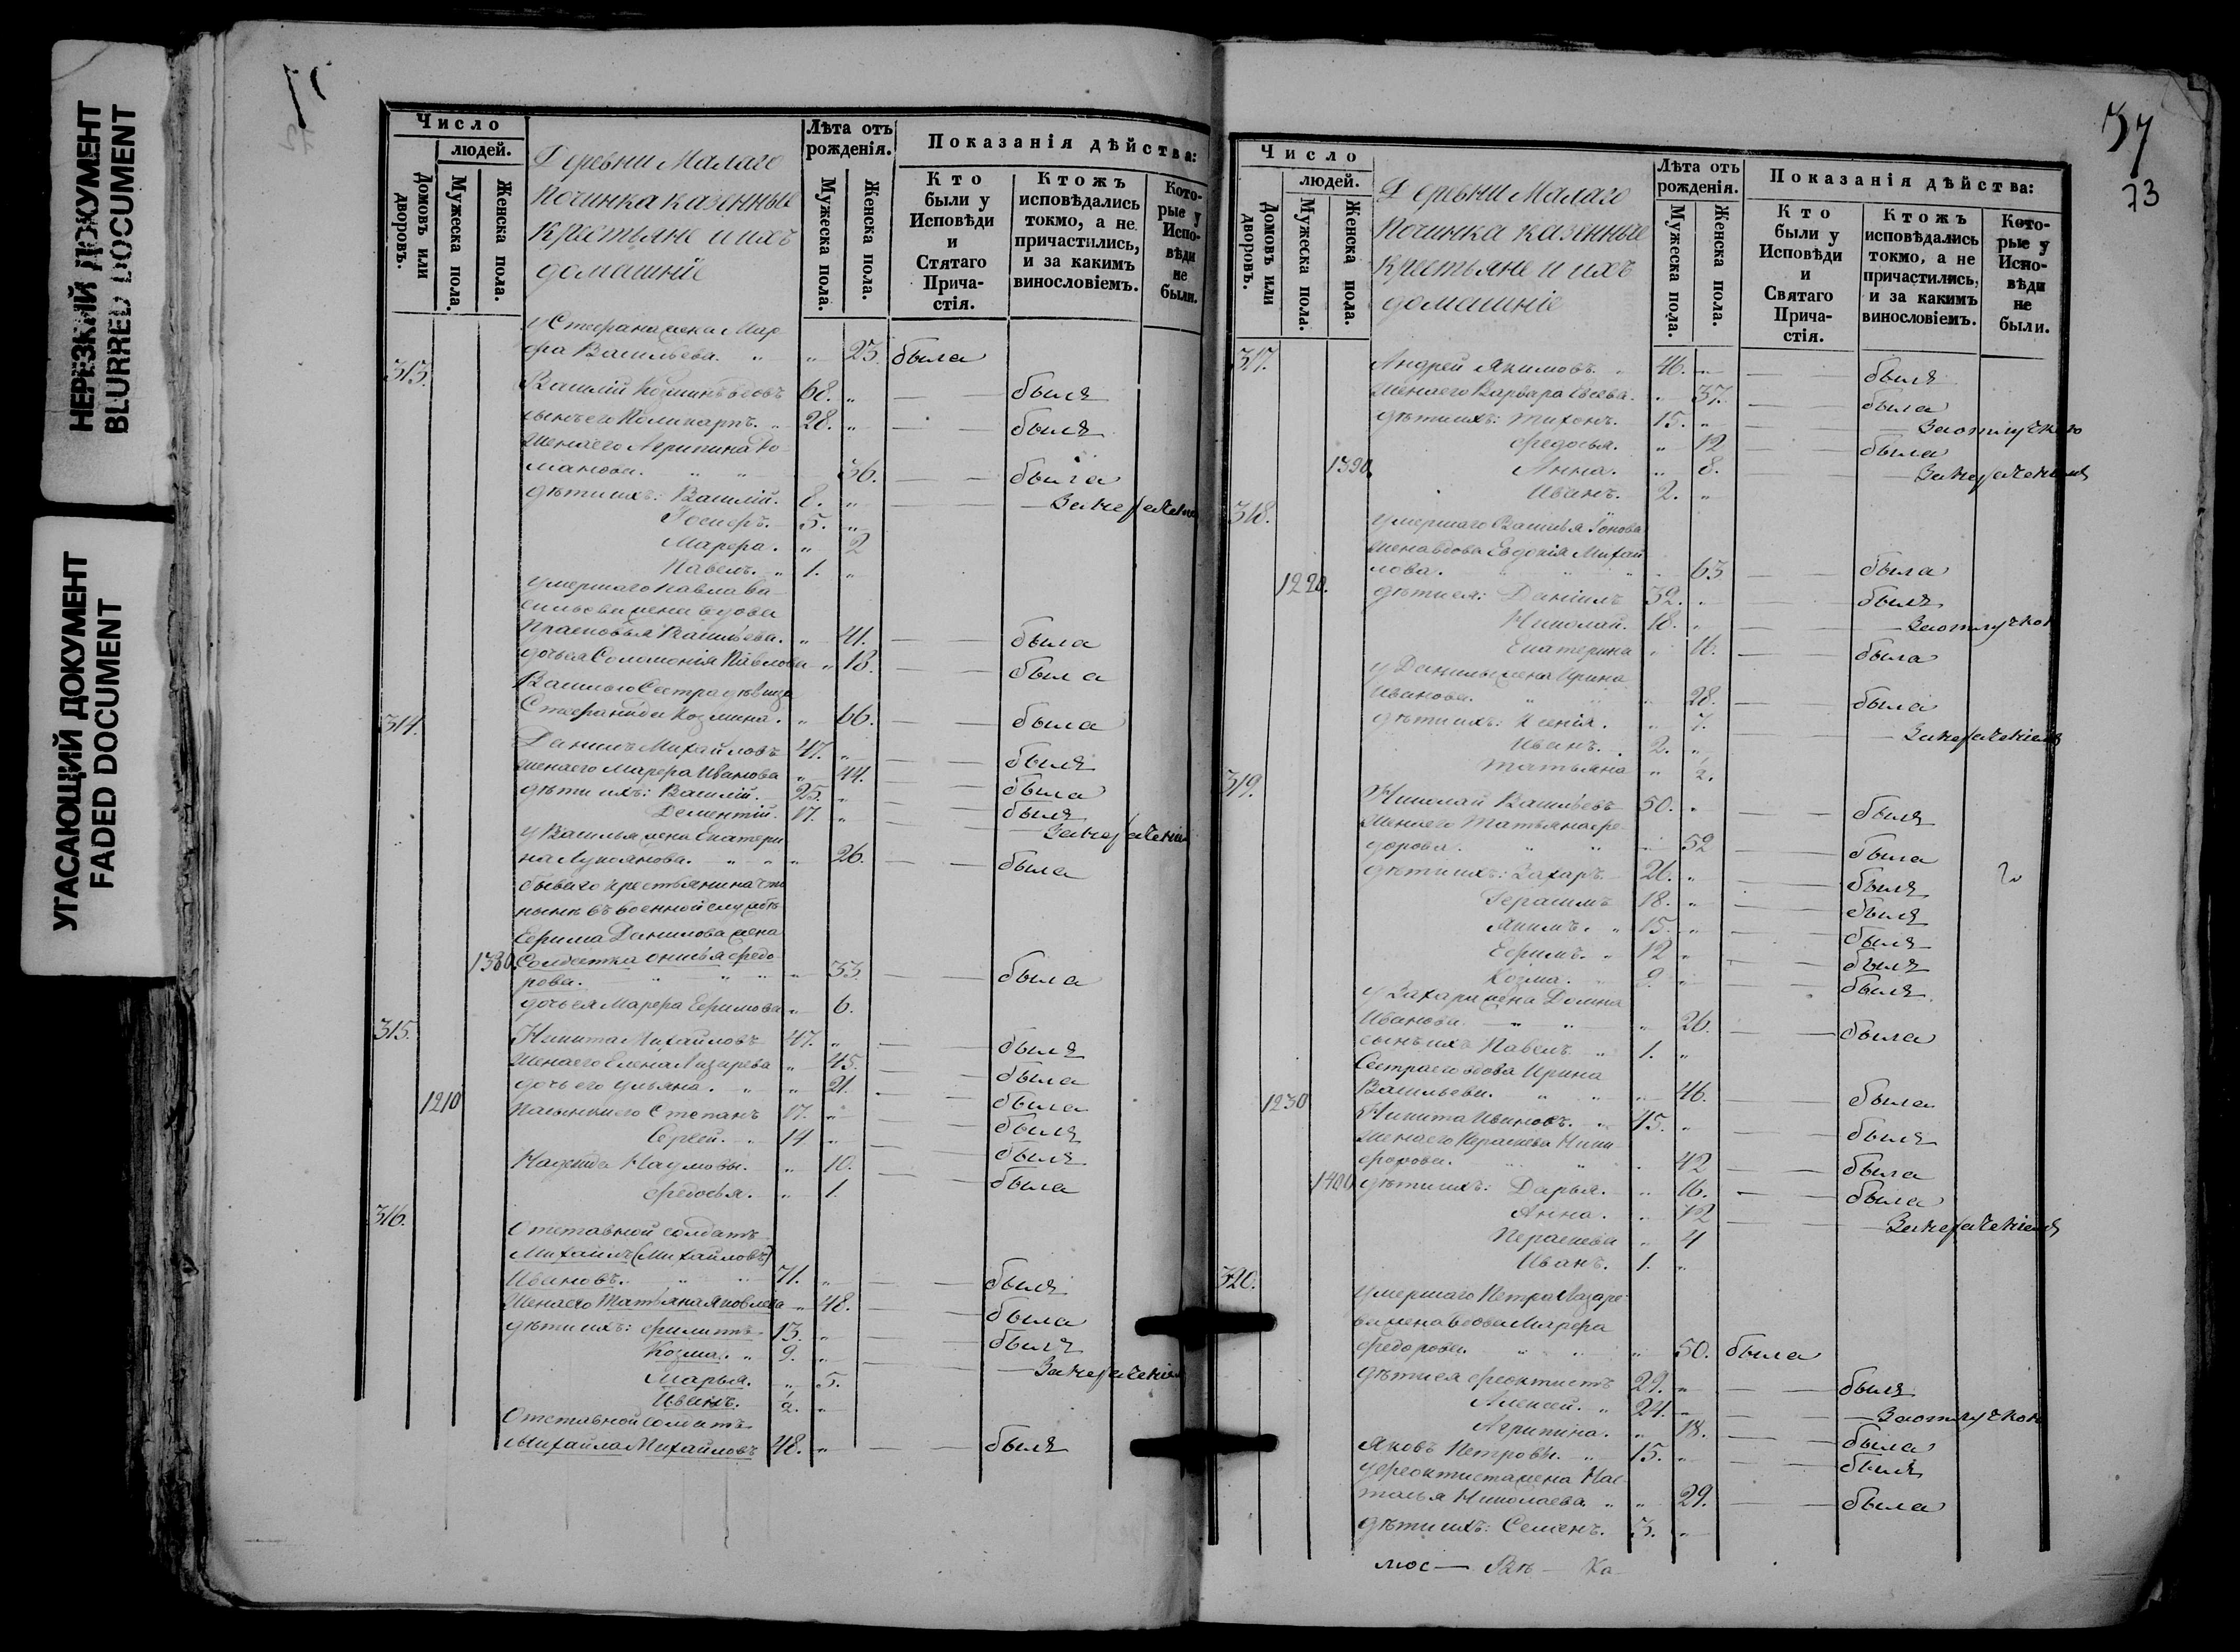 НЕРЕЗКИЙ ДОКУМЕНТ
BLURRED DOCUMENT
УГАСАЮЩИЙ ДОКУМЕНТ
FADED DOCUMENT
Число
людей.
Домовъ или дворовъ.
Мужеска пола.
Женска пола.
Деревни Малаго
Починка казенные
крестьяне и ихъ
домашніе
Лѣта отъ рожденія.
Мужеска пола.
Женска пола.
Показанія дѣйства:
Кто были у Исповѣди и Стятаго Прича-стія.
Ктожъ исповѣдались токмо, а не причастились, и за какимъ винословіемъ.
Кото-рые у Испо-вѣди не были.
у Стефана жена Мар
фа Васильева. " " 23. была
313.
Василій Козминъ вдовъ 68. " былъ
сынъ его Поликарпъ. " 28. " былъ
жена его Агрипина Ро
манова. " " 36. была
дѣти ихъ: Василій. 8. "
Іосифъ. 5. "
Марфа. " 2
Павелъ. " 1. "
умершаго Павла Ва
сильева жена вдова
Прасковья Васильева. " 41. была
дочь ея Соломонія Павлова " 18. была
Василья Сестра дѣвица
Стефанида Козмина. " 66. была
314.
Данилъ Михайловъ 47. " былъ
жена его Марфа Иванова " 44. была
дѣти ихъ: Василій. 25. " былъ
Дементій. 17. "
у Василья жена Екатери
на Лукоянова. " " " 26. была
бываго крестьянина что
нынѣ въ военной службѣ
Ефима Данилова жена
1380. Солдатка Онисья Федо
рова. " " " " 33. была
дочь ея Марфа Ефимова " 6.
315.
Никита Михайловъ 47. " былъ
жена его Елена Лазарева " 45. была
дочь его Ульяна. " " 21. была
1210 Пасынки его Степанъ 17. " былъ
Сергѣй. " 14 " былъ
Надежда Наумовы. " 10. была
Федосья. " 1.
316.
Отставной солдатъ
Михаилъ (Михайловъ)
Ивановъ. " " 71. " былъ
жена его Татьяна Яковлева " 48. была
дѣти ихъ: Филиппъ 13. " былъ
Козма. " 9. "
Марья. " 5.
Иванъ. ½. "
Отставной солдатъ
Михайла Михайловъ 48. " былъ
37
73
Число
людей.
Домовъ или дворовъ.
Мужеска пола.
Женска пола.
Деревни Малаго
Починка казенные
крестьяне и ихъ
домашніе
Лѣта отъ рожденія.
Мужеска пола.
Женска пола.
Показанія дѣйства:
Кто были у Исповѣди и Святаго Прича-стія.
Ктожъ исповѣдались токмо, а не причастились, и за какимъ винословіемъ.
Кото-рые у Испо-вѣди не были.
317.
Андрей Якимовъ. " 46. " былъ
жена его Варвара Евсева. " 37. была
дѣти ихъ: Тихонъ. 15. " За отлучкою
Федосья. " 12 была
1390. Анна. " 8.
Иванъ. 2. "
318.
умершаго Василья Іонова
жена вдова Евдокія Михай
лова. " " " " 63 была
1220. дѣти ея: Даніилъ 32. " былъ
Николай. 18. " За отлучкою
Екатерина " 16. была
у Данилы жена Ирина
Иванова. " " " 28. была
дѣти ихъ: Ксенія. " 7.
Иванъ. 2. "
Татьяна " ½.
319.
Николай Васильевъ 50. " былъ
жена его Татьяна Фе
дорова. " " " 52 была
дѣти ихъ: Захаръ. 26. " былъ
Герасимъ 18. " былъ
Якимъ. " 15. " былъ
Ефимъ. " 12 " былъ
Козма. " 9. " былъ
у Захара жена Домна
Иванова. " " " 26. была
сынъ ихъ Павелъ " 1. "
Сестра его вдова Ирина
Васильева. " " " 46. была
1230 Никита Ивановъ. " 45. " былъ
жена его Парасковья Ники
форова. " " " 42 была
1400 дѣти ихъ: Дарья. " 16. была
Анна. " 12
Парасковья " 4
Иванъ. 1. "
320.
умершаго Петра Лазаре
ва жена вдова Марфа
Федорова. " " " 50. была
дѣти ея Феоктистъ 29. " былъ
Алексей. " 24. " За отлучкою
Агрипина. " 18. была
Яковъ Петровы. " 15. " былъ
у Феоктиста жена На
талья Николаева. " " 29. была
дѣти ихъ: Семенъ. 3. "